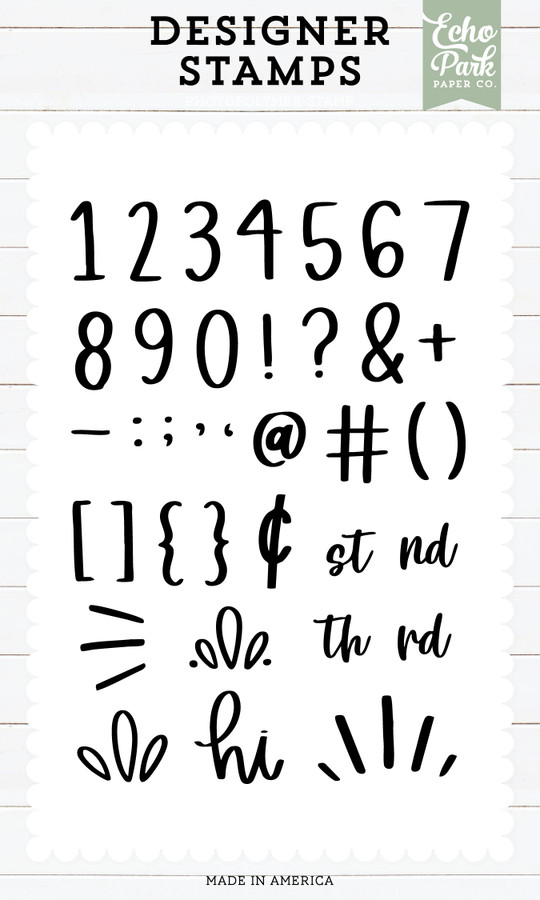 DESIGNER
STAMPS
Echo
Park
PAPER CO.
1 2 3 4 5 6 7
8 9 0 ! ? & +
– : ; ’ ‘ @ # ( )
[ ] { } ¢ st nd
th rd
hi
MADE IN AMERICA